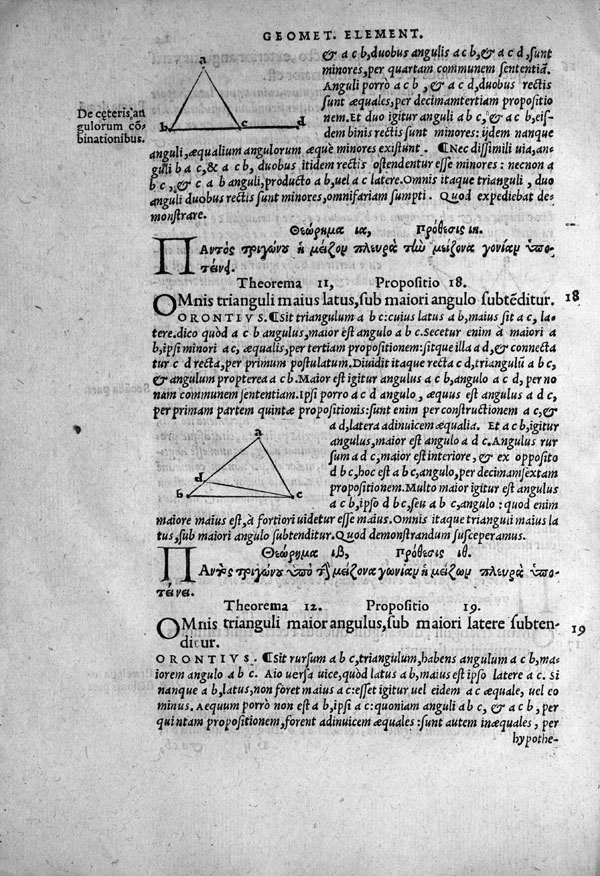 GEOMET. ELEMENT.
& a c b, duobus angulis a c b, & a c d, sunt
minores, per quartam communem sententiã.
Anguli porrò a c b, & a c d, duobus rectis
sunt æquales, per decimamtertiam propositio
nem. Et duo igitur anguli a b c, & a c b, eis-
dem binis rectis sunt minores: ijdem nanque
De cęteris, an
gulorum cõ-
binationibus.
a
b
c
d
anguli, æqualium angulorum æquè minores existunt. ¶Nec dissimili uia, an-
guli b a c, & a c b, duobus itidem rectis ostendentur esse minores: necnon a
b c, & c a b anguli, producto a b, uel a c latere. Omnis itaque trianguli, duo
anguli duobus rectis sunt minores, omnifariam sumpti. Quod expediebat de-
monstrare.
Θεώρημα ια, Πρόθεσις ιη.
ΠΑντὸς τριγώνου ἡ μείζων πλευρὰ τὴν μείζονα γωνίαν ὑπο-
τείνει.
Theorema 11, Propositio 18.
OMnis trianguli maius latus, sub maiori angulo subtẽditur.
18
ORONTIVS. ¶Sit triangulum a b c: cuius latus a b, maius sit a c, la-
tere. dico quòd a c b angulus, maior est angulo a b c. Secetur enim à maiori a
b, ipsi minori a c, æqualis, per tertiam propositionem: sitque illa a d, & connecta
tur c d recta, per primum postulatum. Diuidit itaque recta c d, triangulũ a b c,
& angulum propterea a c b. Maior est igitur angulus a c b, angulo a c d, per no
nam communem sententiam. Ipsi porro a c d angulo, æquus est angulus a d c,
per primam partem quintæ propositionis: sunt enim per constructionem a c, &
a d, latera adinuicem æqualia. Et a c b, igitur
angulus, maior est angulo a d c. Angulus rur
sum a d c, maior est interiore, & ex opposito
d b c, hoc est a b c, angulo, per decimamsextam
propositionem. Multo maior igitur est angulus
a c b, ipso d b c, seu a b c, angulo: quod enim
a
d
b
c
maiore maius est, à fortiori uidetur esse maius. Omnis itaque trianguli maius la
tus, sub maiori angulo subtenditur. Quod demonstrandum susceperamus.
Θεώρημα ιβ, Πρόθεσις ιθ.
ΠΑντὸς τριγώνου ὑπὸ τὴν μείζονα γωνίαν ἡ μείζων πλευρὰ ὑπο-
τείνει.
Theorema 12. Propositio 19.
OMnis trianguli maior angulus, sub maiori latere subten-
ditur.
19
ORONTIVS. ¶Sit rursum a b c, triangulum, habens angulum a c b, ma-
iorem angulo a b c. Aio uersa uice, quòd latus a b, maius est ipso latere a c. Si
nanque a b, latus, non foret maius a c: esset igitur uel eidem a c æquale, uel eo
minus. Aequum porrò non est a b, ipsi a c: quoniam anguli a b c, & a c b, per
quintam propositionem, forent adinuicem æquales: sunt autem inæquales, per
hypothe-